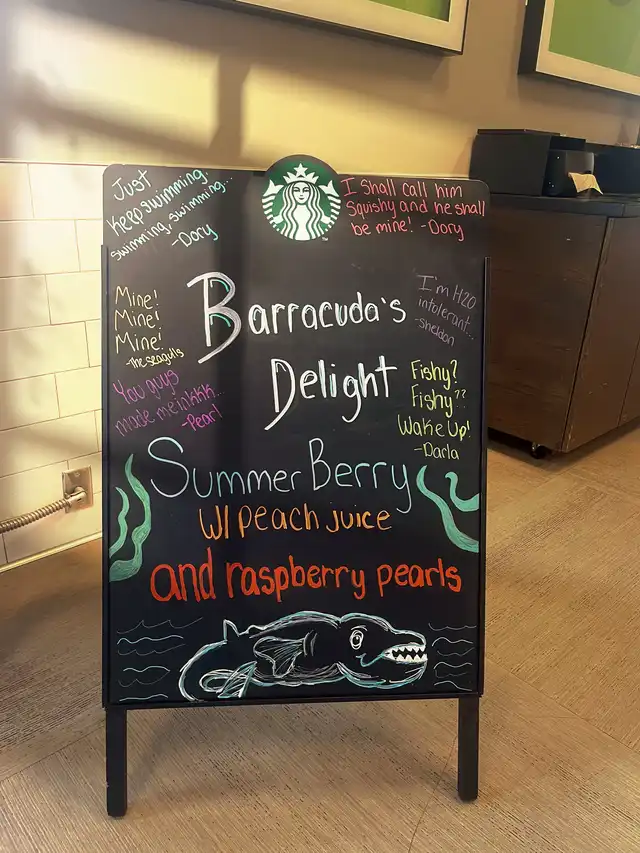 Just
Keep swimming,
swimming, swimming...
-Dory
I shall call him
Squishy and he shall
be mine! -Dory
Mine!
Mine!
Mine!
-The seagulls
Barracuda's
Delight
I'm H2O
intolerant...
-sheldon
You guys
made me inkkk...
-Pearl
Fishy?
Fishy??
Wake Up!
-Darla
Summer Berry
W/ Peach Juice
and raspberry pearls